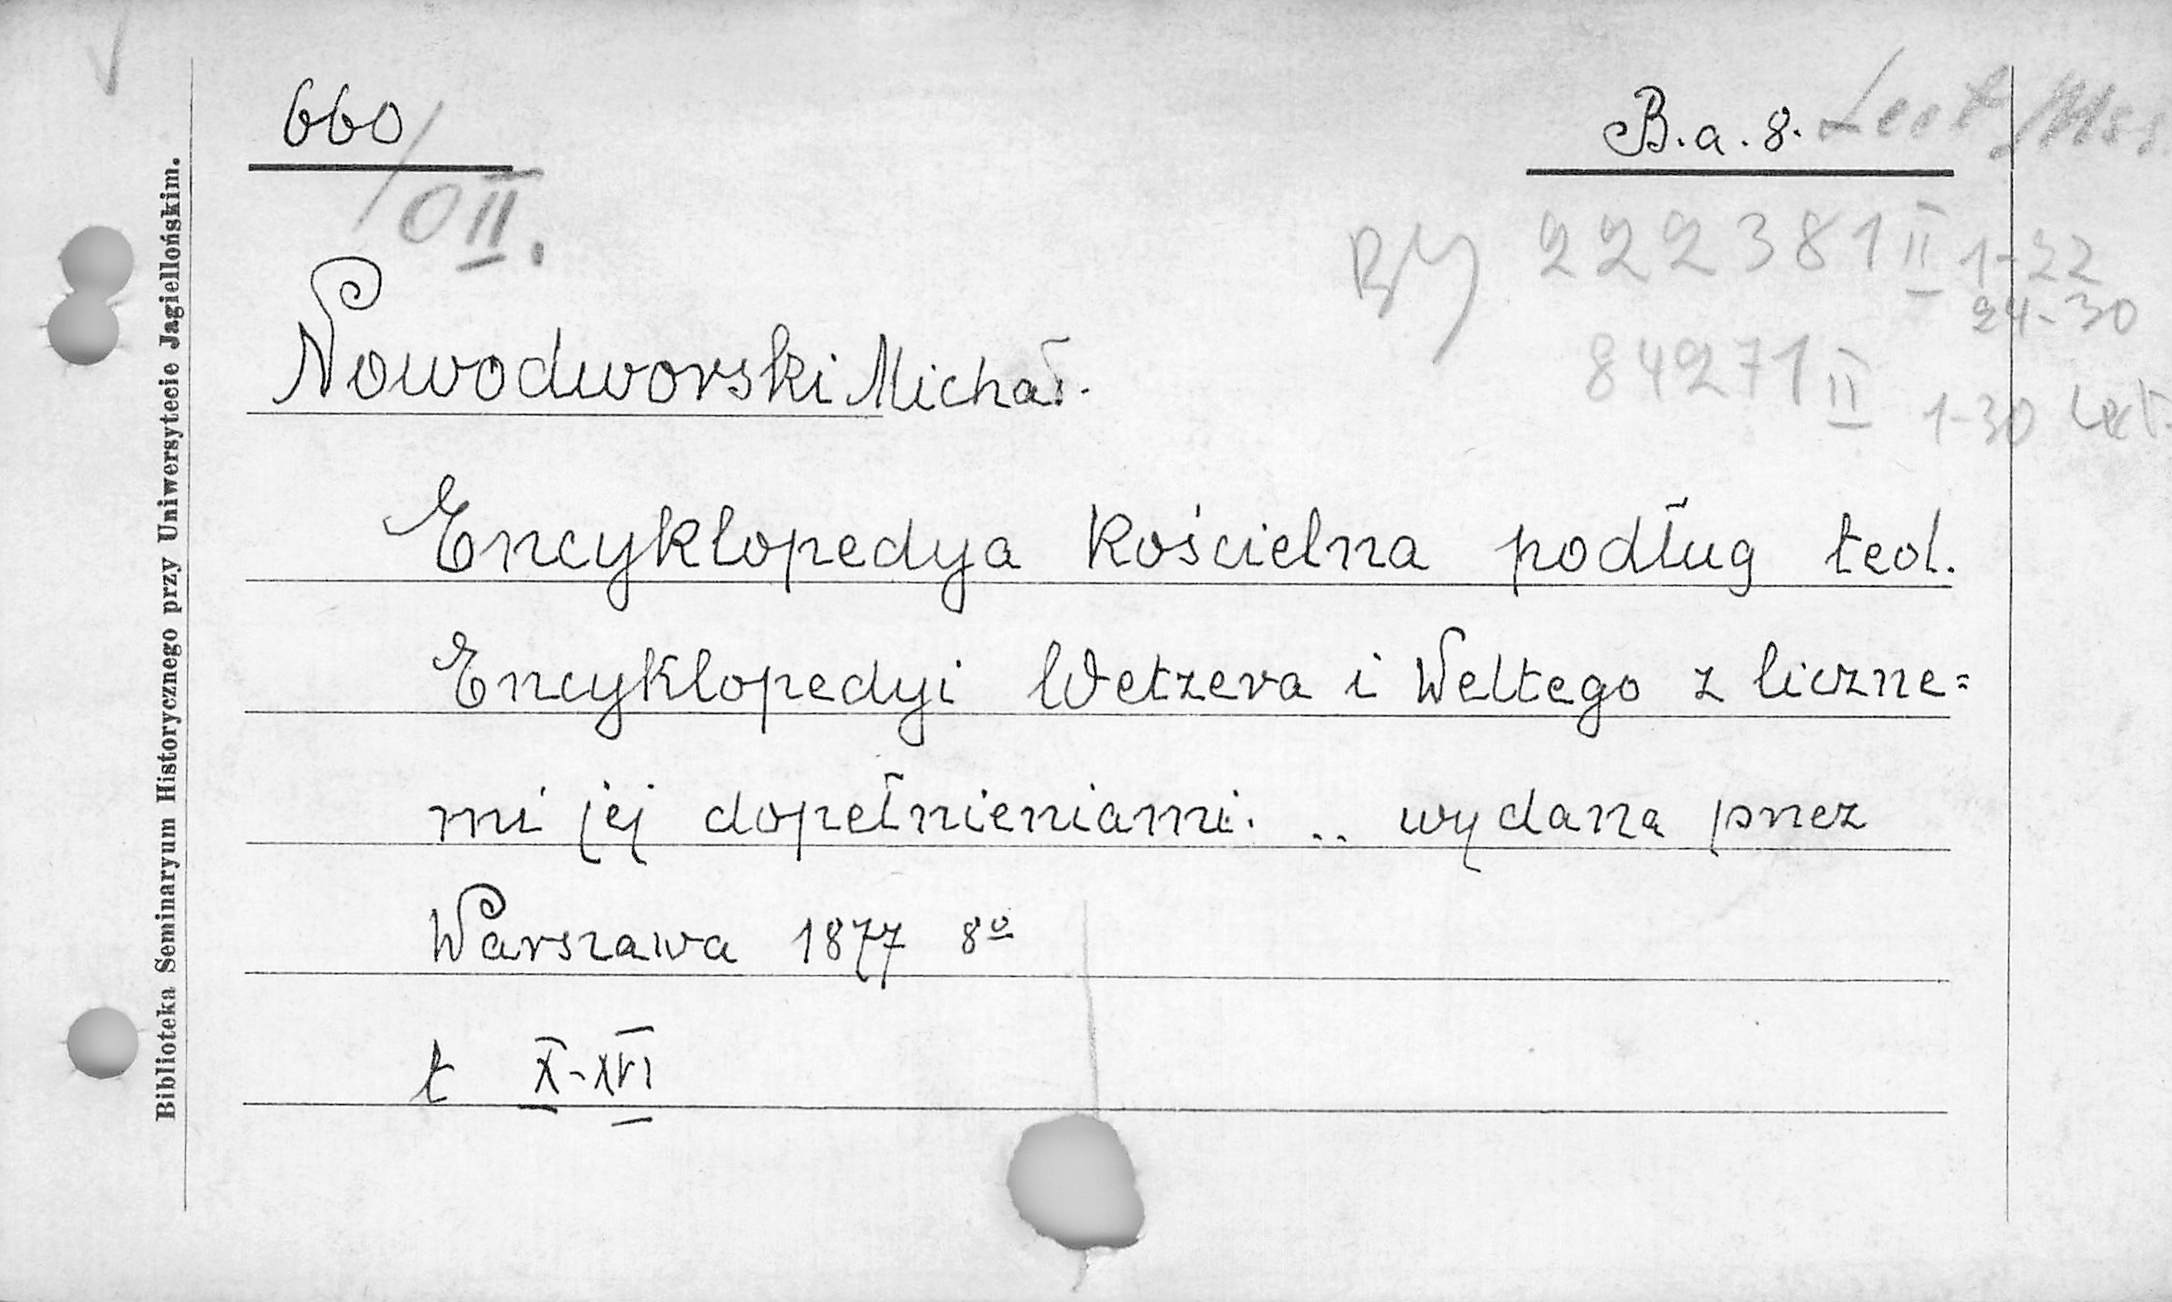 660
/OII.
B.a.8. Lect/Mss.
BJ 222381 II 1-22
24-30
84271 II 1-30 Lekt.
Nowodworski Michał.
Encyklopedya Kościelna podług teol.
Encyklopedyi Wetzera i Weltego z liczne=
mi jej dopełnieniami. .. wydana przez
Warszawa 1877 8o
t X-XVI
Biblioteka Seminaryum Historycznego przy Uniwersytecie Jagiellońskim.